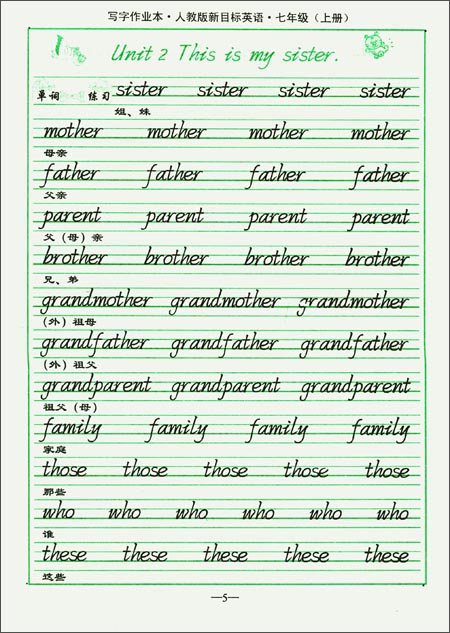 写字作业本·人教版新目标英语·七年级（上册）
Unit 2 This is my sister.
单词 练习 sister sister sister sister
姐、妹
mother mother mother mother
母亲
father father father father
父亲
parent parent parent parent
父（母）亲
brother brother brother brother
兄、弟
grandmother grandmother grandmother
（外）祖母
grandfather grandfather grandfather
（外）祖父
grandparent grandparent grandparent
祖父（母）
family family family family
家庭
those those those those those
那些
who who who who who who
谁
these these these these these
这些
—5—